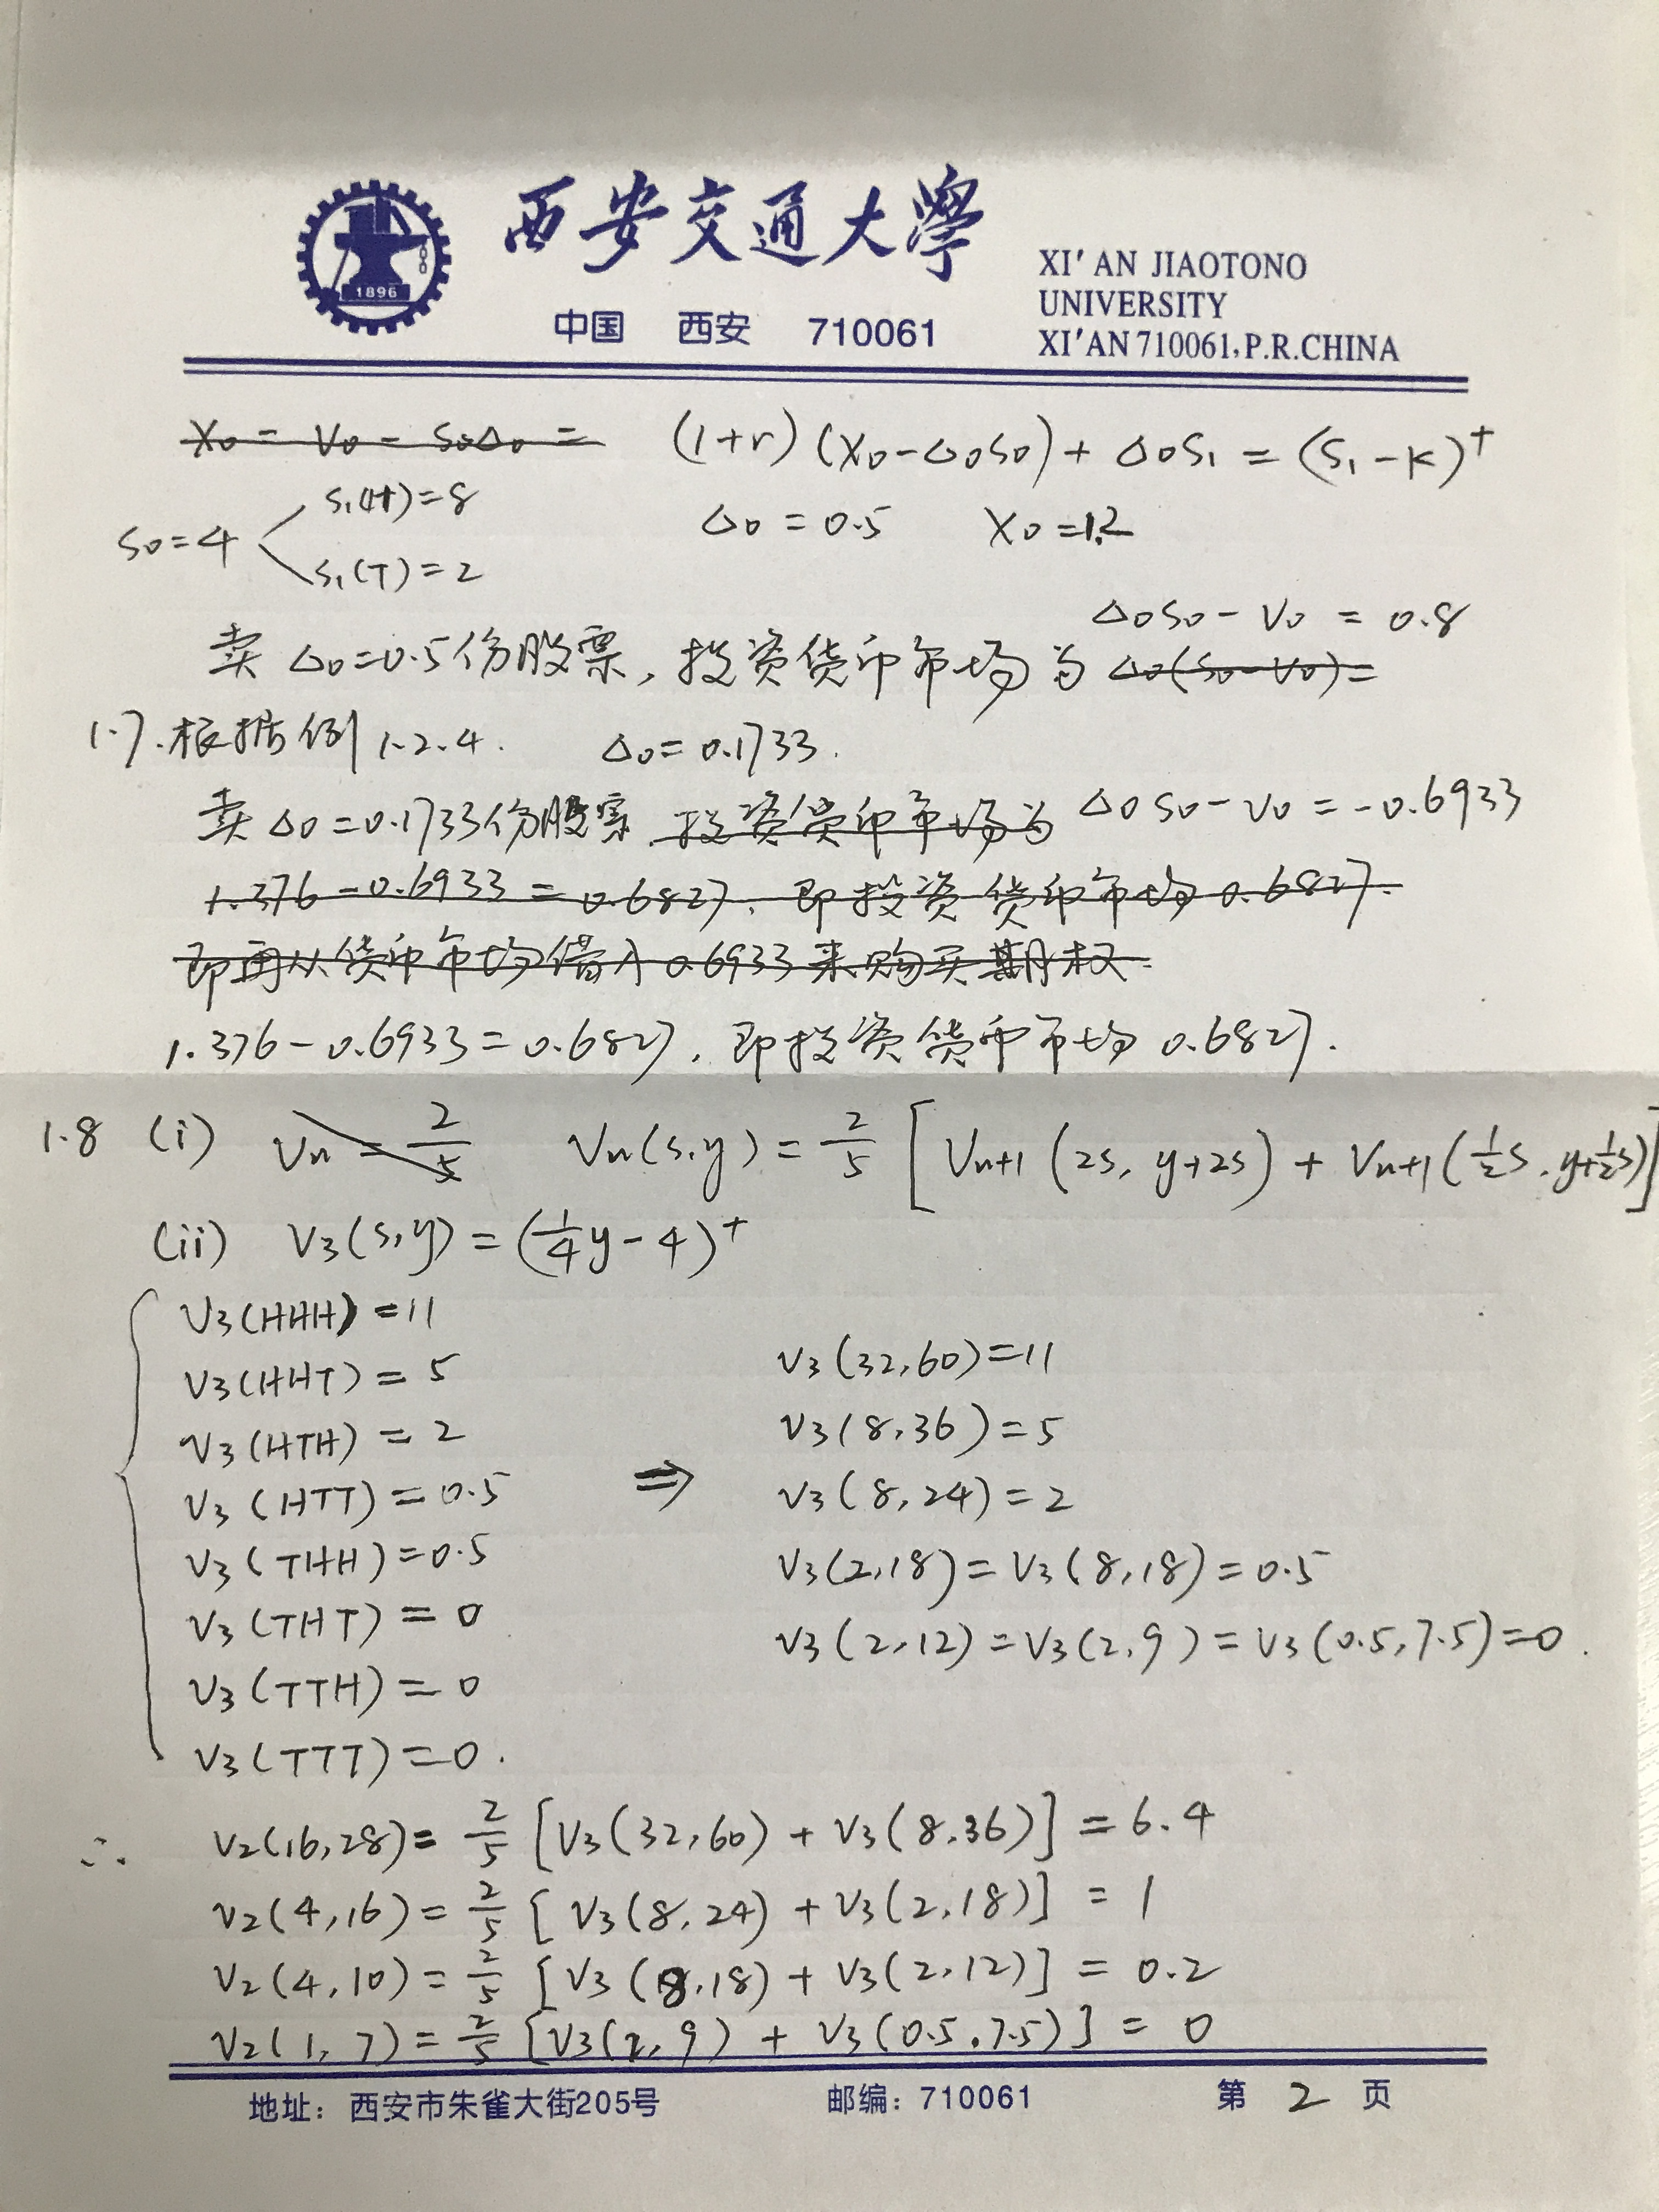 西安交通大學
1896
中国 西安 710061
XI'AN JIAOTONO
UNIVERSITY
XI'AN 710061, P.R.CHINA
X₀ = V₀ - S₀Δ₀ = (1+r)(X₀-Δ₀S₀)+Δ₀S₁ = (S₁-K)⁺
S₀=4 S₁(H)=8
S₁(T)=2
Δ₀=0.5 X₀=1.2
Δ₀S₀-V₀=0.8
卖Δ₀=0.5份股票,投资货币市场为 Δ₀(S₀-V₀)=
1.7.根据例1.2.4. Δ₀=0.1733.
卖Δ₀=0.1733份股票.投资货币市场为 Δ₀S₀-V₀=-0.6933
1.376-0.6933=0.6827,即投资货币市场0.6827.
即再从货币市场借入0.6933来购买期权.
1.376-0.6933=0.6827,即投资货币市场0.6827.
1.8 (i) Vn=2/5 Vn(s,y)=2/5[Vn+1(2s,y+2s)+Vn+1(1/2s,y+1/2s)]
(ii) V₃(s,y)=(1/4y-4)⁺
V₃(HHH)=11
V₃(HHT)=5
V₃(HTH)=2
V₃(HTT)=0.5
V₃(THH)=0.5
V₃(THT)=0
V₃(TTH)=0
V₃(TTT)=0.
⇒
V₃(32,60)=11
V₃(8,36)=5
V₃(8,24)=2
V₃(2,18)=V₃(8,18)=0.5
V₃(2,12)=V₃(2,9)=V₃(0.5,7.5)=0.
∴ V₂(16,28)=2/5[V₃(32,60)+V₃(8,36)]=6.4
V₂(4,16)=2/5[V₃(8,24)+V₃(2,18)]=1
V₂(4,10)=2/5[V₃(8,18)+V₃(2,12)]=0.2
V₂(1,7)=2/5[V₃(2,9)+V₃(0.5,7.5)]=0
地址:西安市朱雀大街205号 邮编:710061 第2页